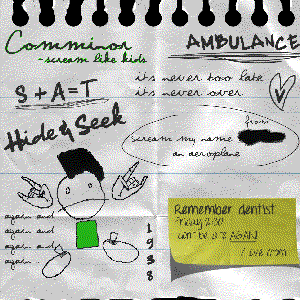 Comminor
-scream like kids
AMBULANCE
its never too late
its never over
S + A = T
Hide & Seek
from
scream my name
an aeroplane
again and
again and
again and
again
1
9
3
8
Remember dentist
AGAIN!